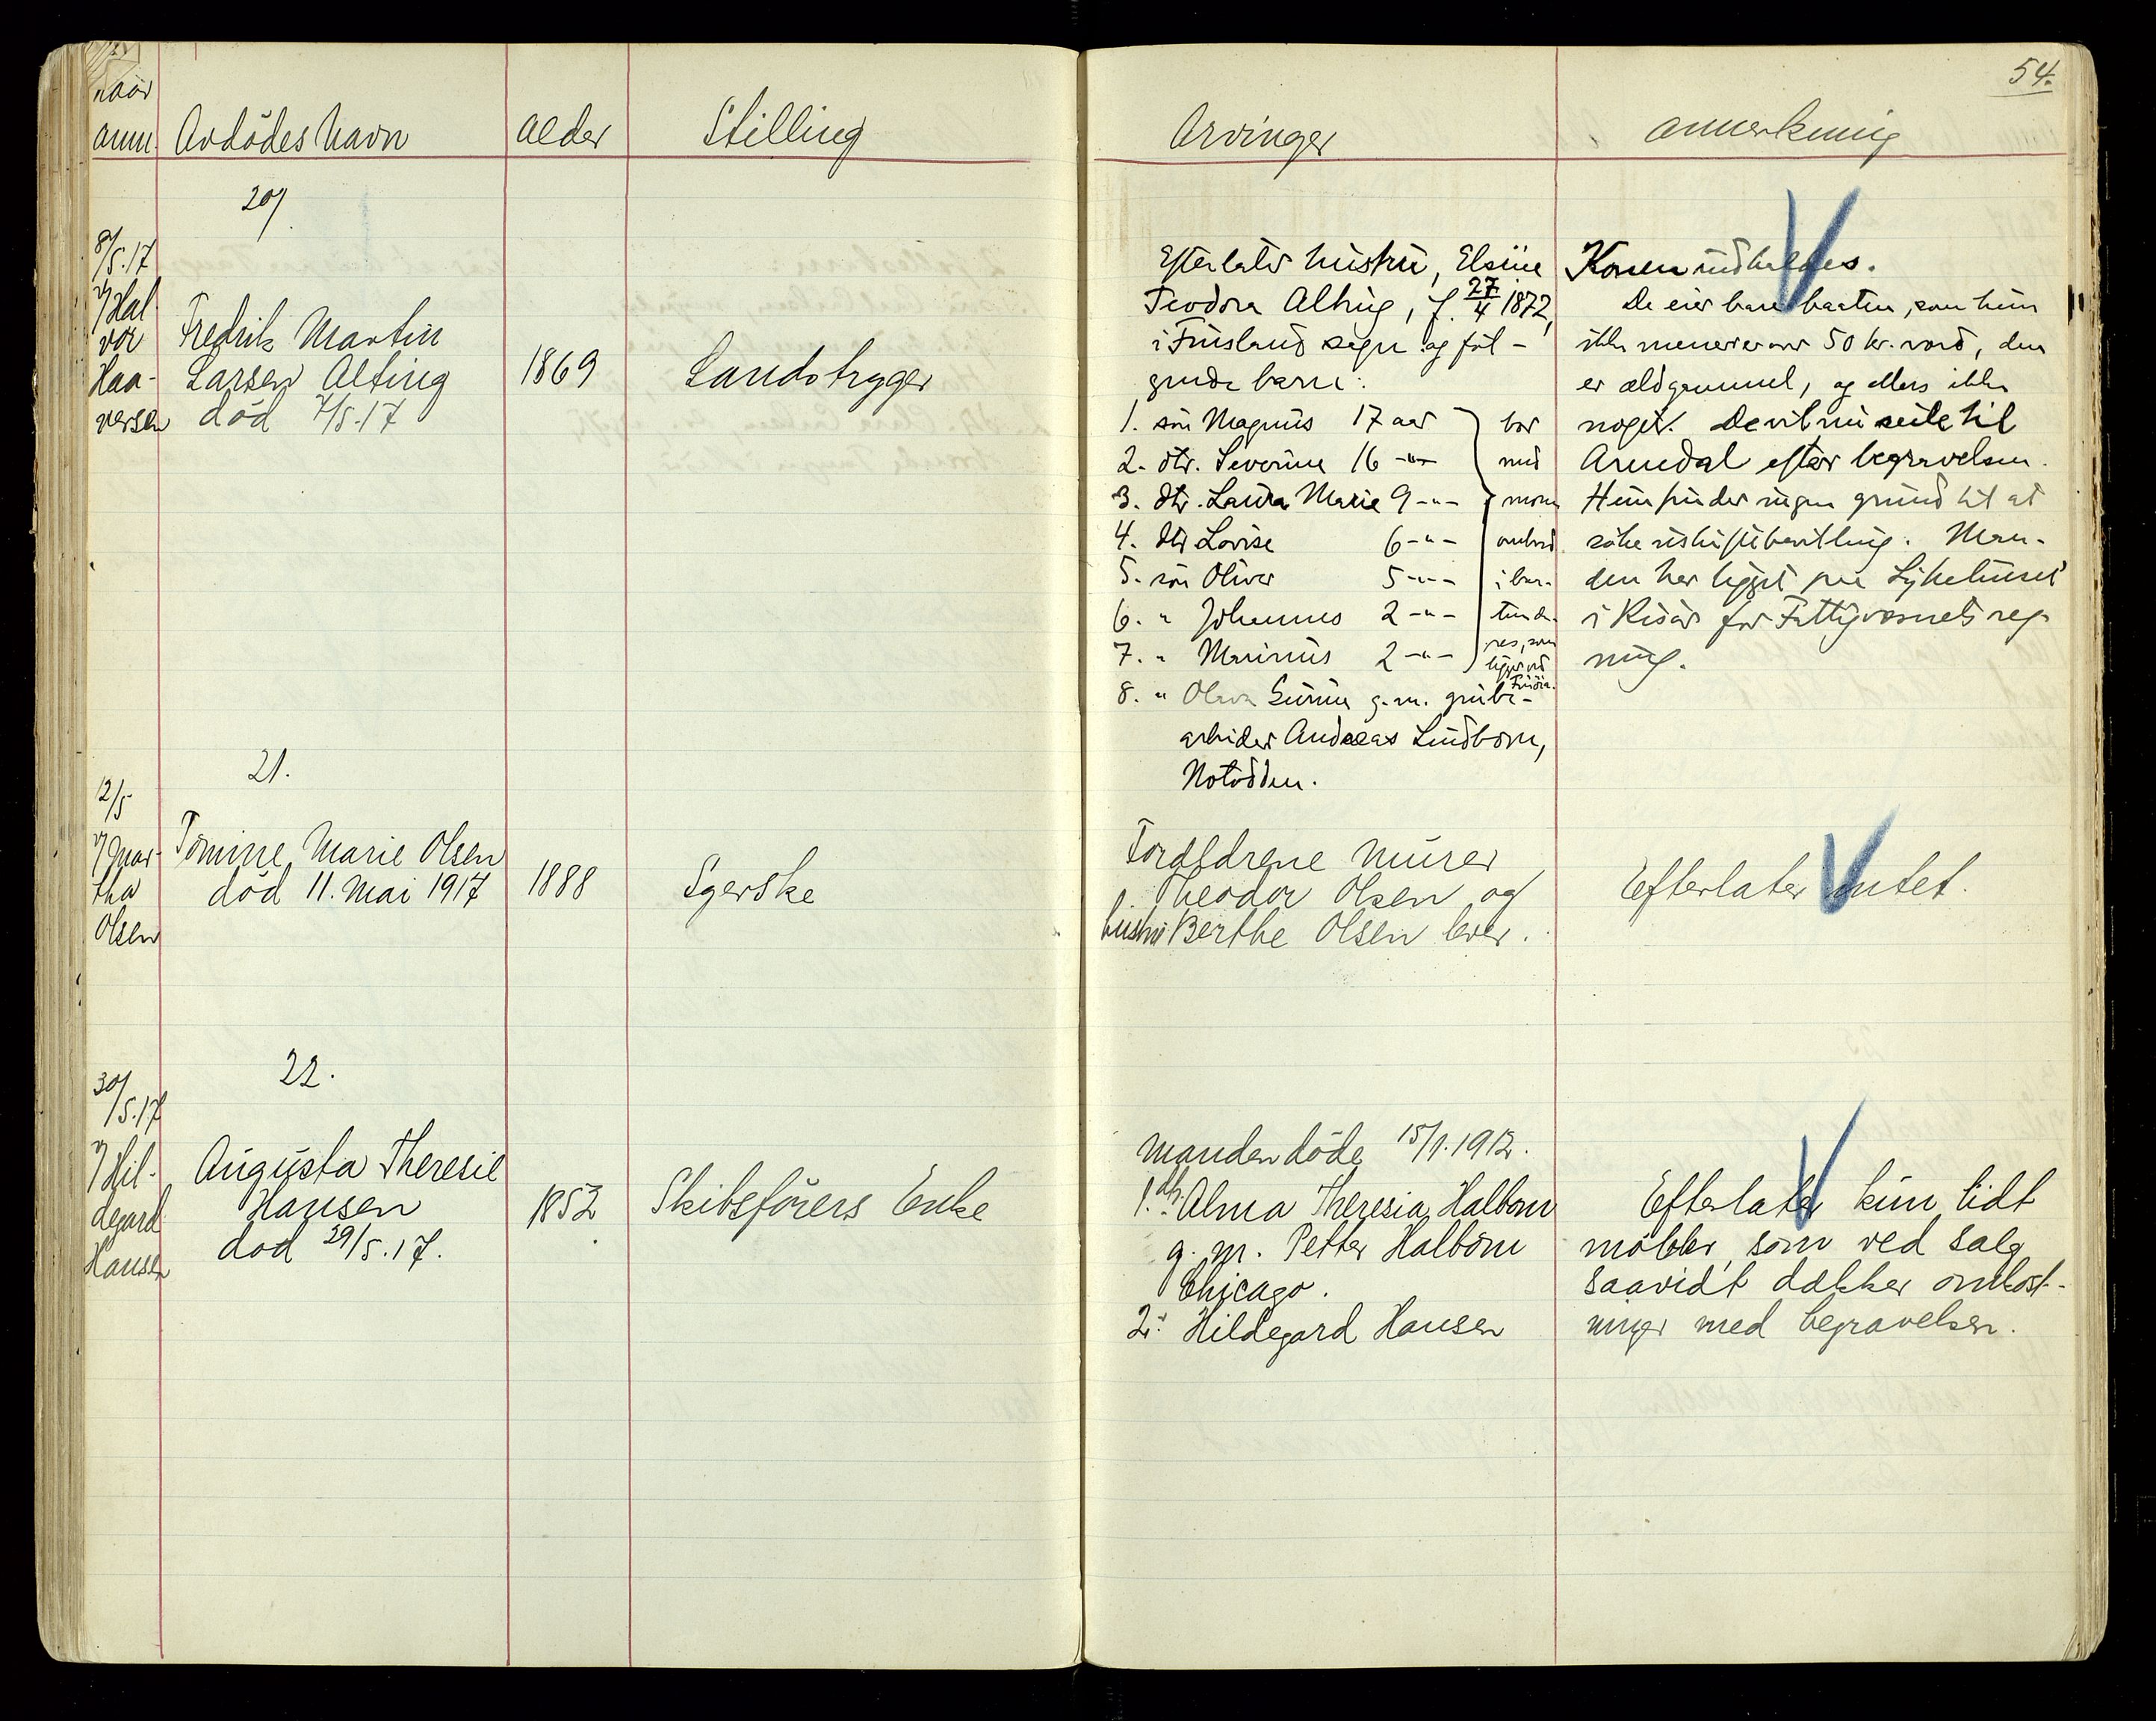 54.
naar
anm.
Avdödes navn
alder
Stilling
Arvinger
anmerkning
20/
8/5.17
v/Hal
vor
Haa-
versen
Fredrik Martin
Larsen Alting
död 7/5.17
1869
Landstryger
Efterlater hustru, Elsine
Teodora Alting, f. 27/4 1872,
i Finsland sogn og föl-
gende barn:
1. sön Magnus 17 aar
2. dtr. Severine 16 -"-
3. dtr. Laura Marie 9 -"-
4. dtr Lovise 6 -"-
5. sön Oliver 5 -"-
6. " Johannes 2 -"-
7. " Marinus 2 -"-
bor
med
moren
ombord
i baa-
ten de-
res, som
ligger ved
8. " Gunne g.m. grube-
arbeider Andreas Lindbom,
Notodden.
Konen indkaldes.
De eier bare baaten, som hun
ikke mener er over 50 kr. værd, den
er ældgammel, og ellers ikke
noget. De vil nu seile til
Arendal efter begravelsen.
Hun finder ingen grund til at
söke uskiftebevilling. Man-
den har ligget paa Sykehuset
i Risör for Fattigvæsnets reg-
ning.
21.
12/5
v/Mar-
tha
Olsen
Tomine Marie Olsen
död 11. Mai 1917
1888
Syerske
Forældrene murer
Theodor Olsen og
hustru Berthe Olsen lever.
Efterlater intet.
22.
30/5.17
v/Hil-
degard
Hansen
Augusta Theresie
Hansen
död 29/5.17.
1852
Skibsförers Enke
Manden döde 15/1.1912.
1. dtr. Alma Theresia Halbom
g. m. Petter Halbom
Chicago.
2. " Hildegard Hansen
Efterlater kun lidt
möbler, som ved salg
saavidt dækker omkost-
ninger med begravelsen.